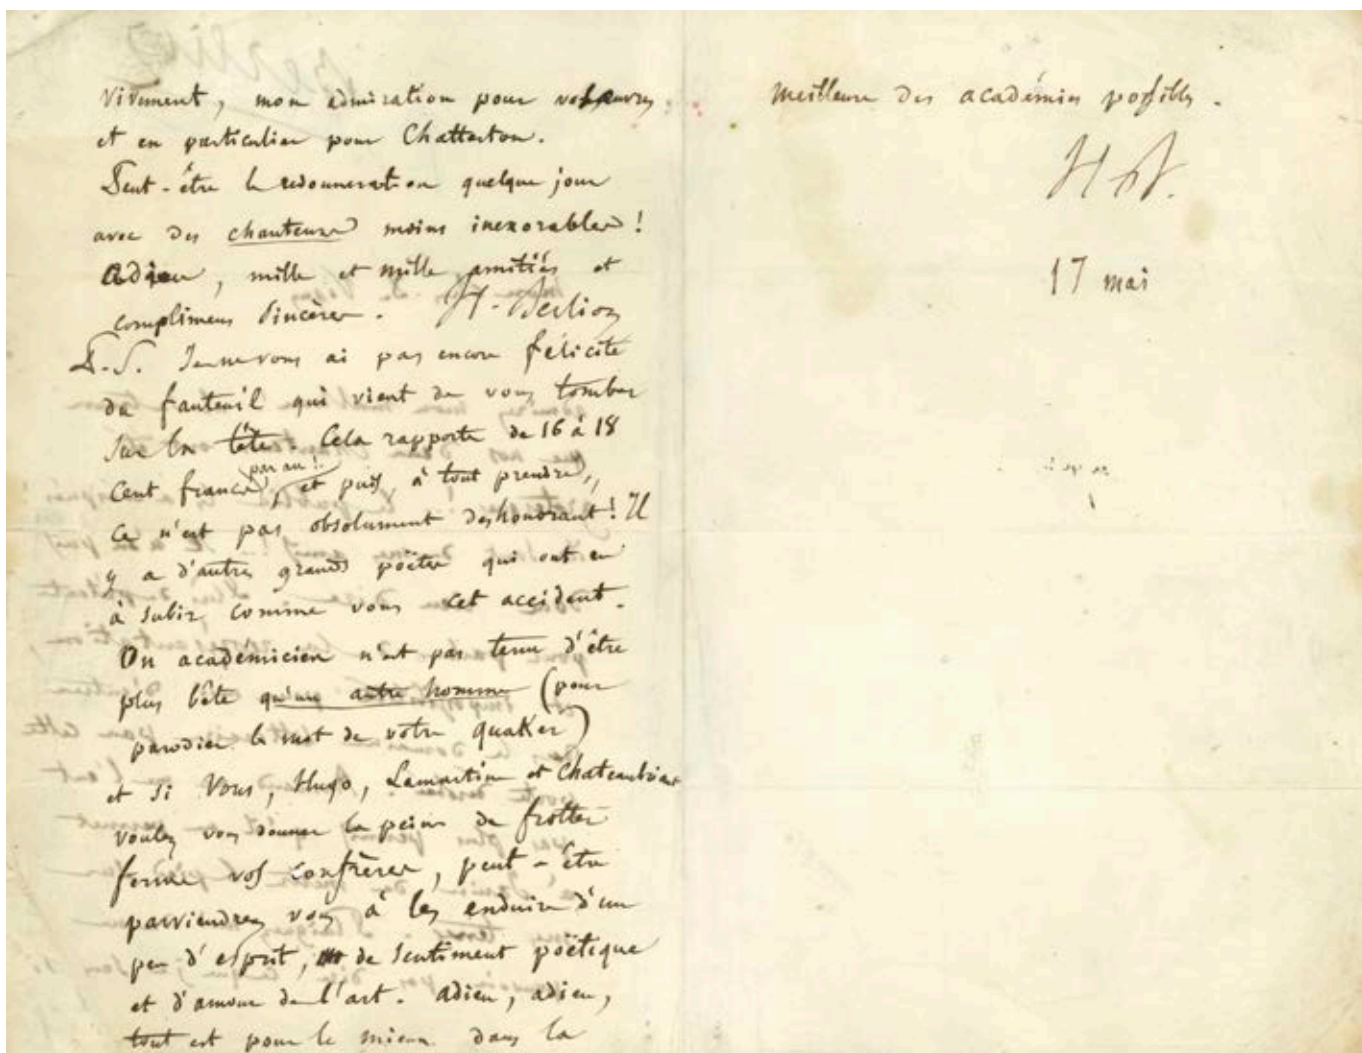 vivement, mon admiration pour vos œuvres
et en particulier pour Chatterton.
Peut-être le redonnera-t-on quelque jour
avec des chanteurs moins inexorables!
Adieu, mille et mille amitiés et
complimens sincères. H. Berlioz
P.S. Je ne vous ai pas encore félicité
du fauteuil qui vient de vous tomber
sur la tête. Cela rapporte de 16 à 18
cent francs par an!, et puis, à tout prendre,
ce n'est pas absolument deshonorant! Il
y a d'autres grands poëtes qui ont eu
à subir comme vous cet accident.
Un académicien n'est pas tenu d'être
plus bête qu'un autre homme (pour
parodier le mot de votre quaker)
et si Vous, Hugo, Lamartine et Chateaubriand
voulez vous donner la peine de frotter
ferme vos confrères, peut-être
parviendrez vous à les enduire d'un
peu d'esprit, de sentiment poëtique
et d'amour de l'art. adieu, adieu,
tout est pour le mieux dans la
meilleure des académies possibles.
H.B.
17 mai